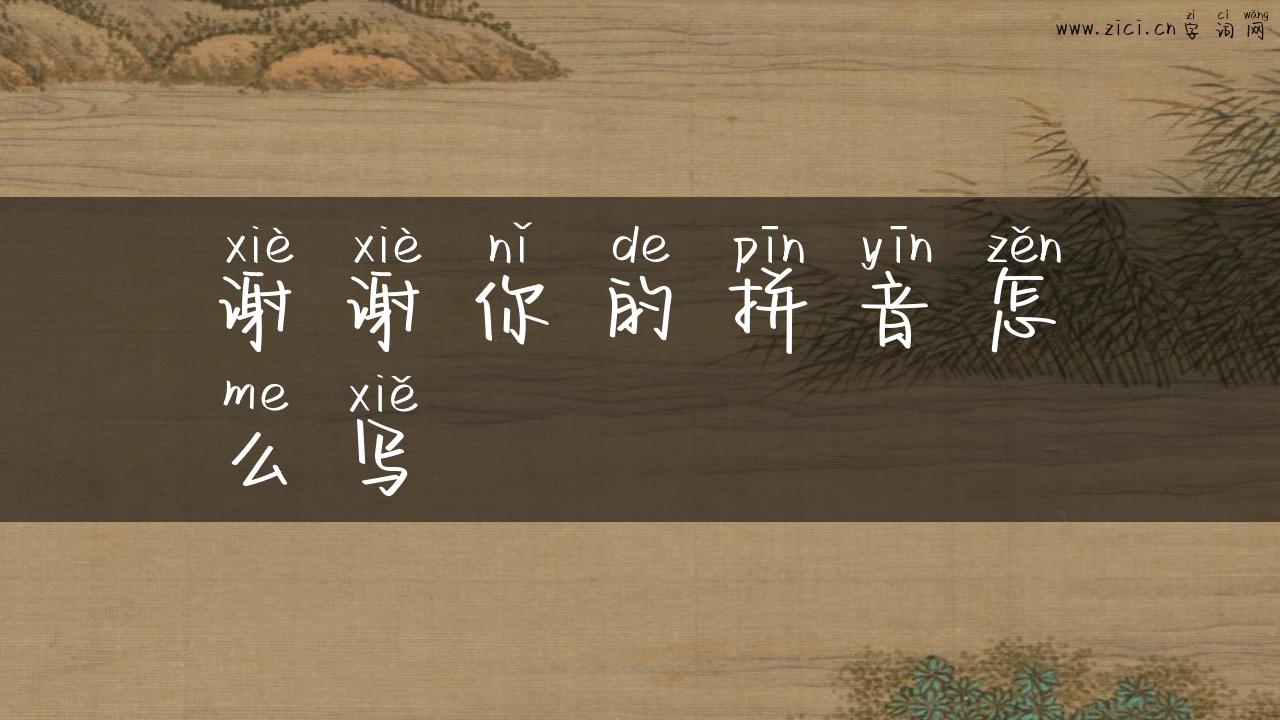 zì cí wǎng
www.zici.cn字词网
xiè xiè nǐ de pīn yīn zěn
谢谢你的拼音怎
me xiě
么写